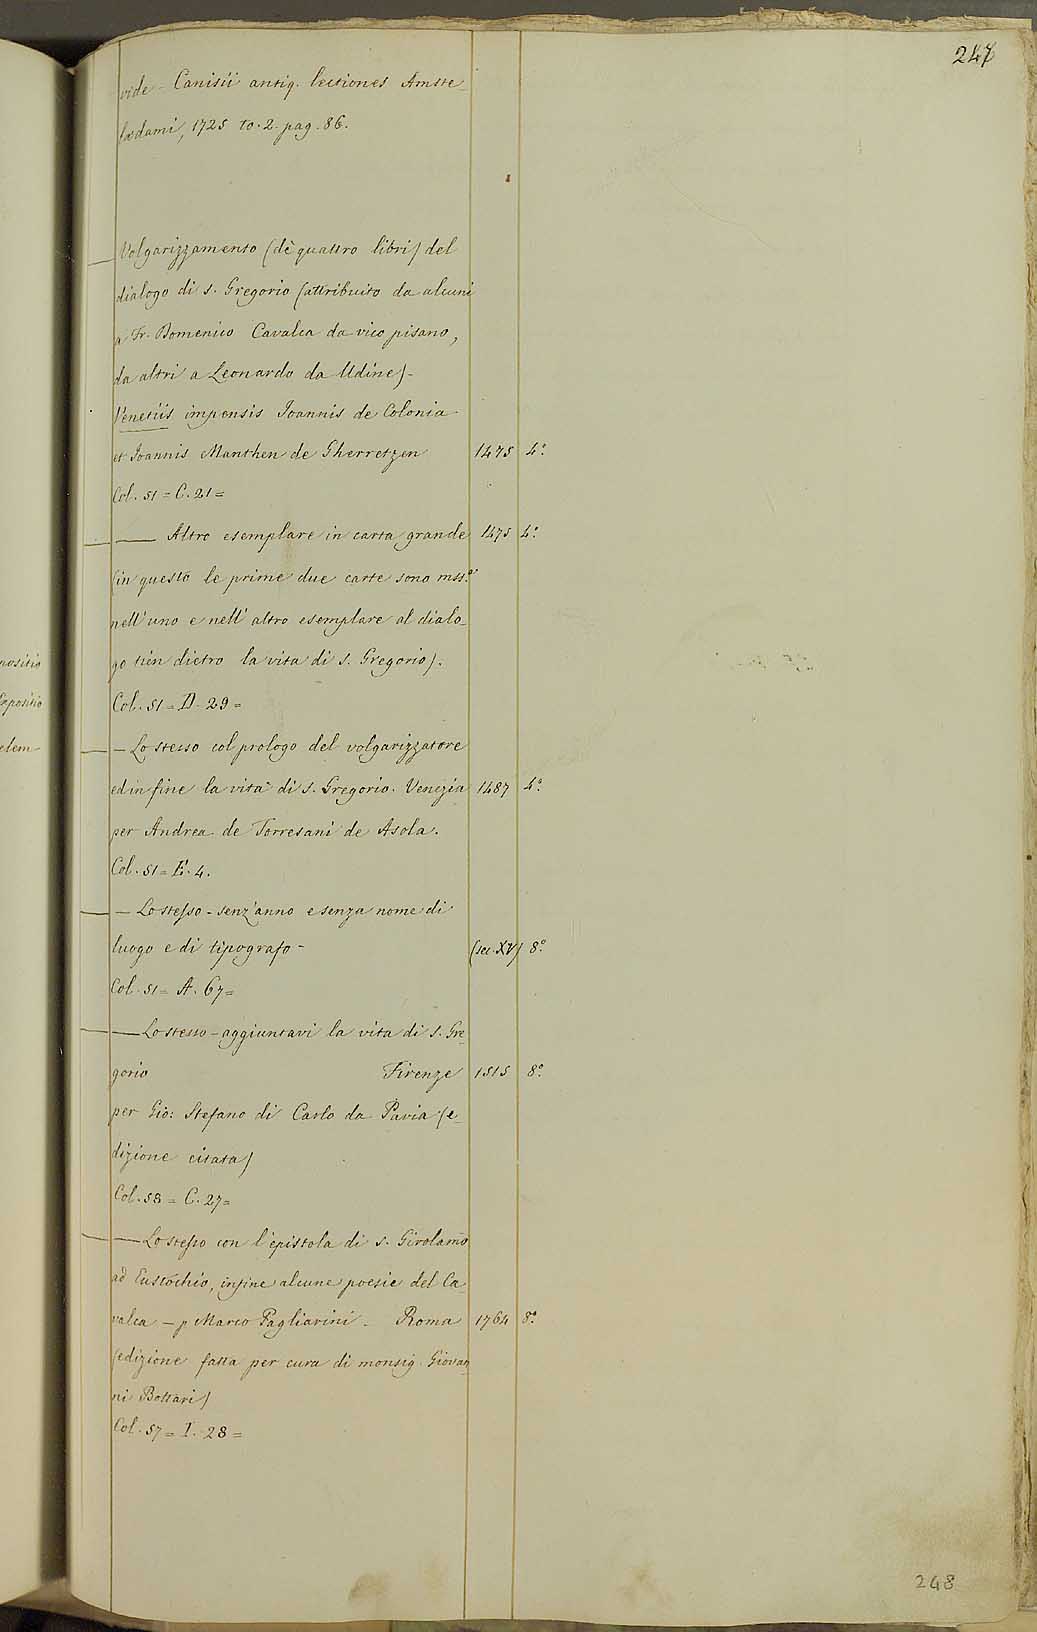 247
vide - Canisii antiq. lectiones Amste_
lædami, 1725 to. 2. pag. 86.
Volgarizzamento (dè quattro libri) del
dialogo di s. Gregorio (attribuito da alcuni
a Fr. Domenico Cavalca da vico pisano,
da altri a Leonardo da Udine)-
Venetiis impensis Joannis de Colonia
et Joannis Manthen de Gherretzen 1475 4°.
Col. 51 = C. 21 =
—— Altro esemplare in carta grande 1475 4°.
(in questo le prime due carte sono mss.
nell'uno e nell'altro esemplare al dialo_
go tien dietro la vita di s. Gregorio).
Col. 51 = D. 29 =
— Lo stesso col prologo del volgarizzatore
ed in fine la vita di s. Gregorio. Venezia 1487 4°.
per Andrea de Torresani de Asola.
Col. 51 = E. 4.
— Lo stesso - senz'anno e senza nome di
luogo e di tipografo - (sec. XV) 8°.
Col. 51 = A. 67 =
— Lo stesso - aggiuntavi la vita di s. Gre_
gorio Firenze 1515 8°.
per Gio: Stefano di Carlo da Pavia (e_
dizione citata)
Col. 58 = C. 27 =
— Lo stesso con l'epistola di s. Girolamo
ad Eustòchio, infine alcune poesie del Ca_
valca - p Marco Pagliarini - Roma 1764 8°.
(edizione fatta per cura di monsig. Giovan_
ni Bottari)
Col. 57 = I. 28 =
248
nositio
Expositio
elem-